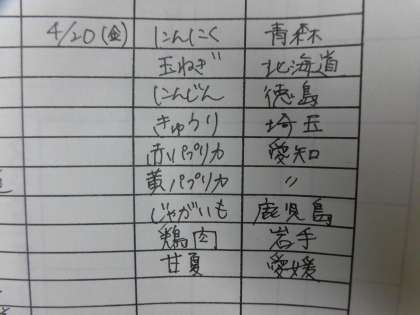 4/20(金) にんにく 青森
玉ねぎ 北海道
にんじん 徳島
きゅうり 埼玉
赤パプリカ 愛知
黄パプリカ 〃
じゃがいも 鹿児島
鶏肉 岩手
甘夏 愛媛